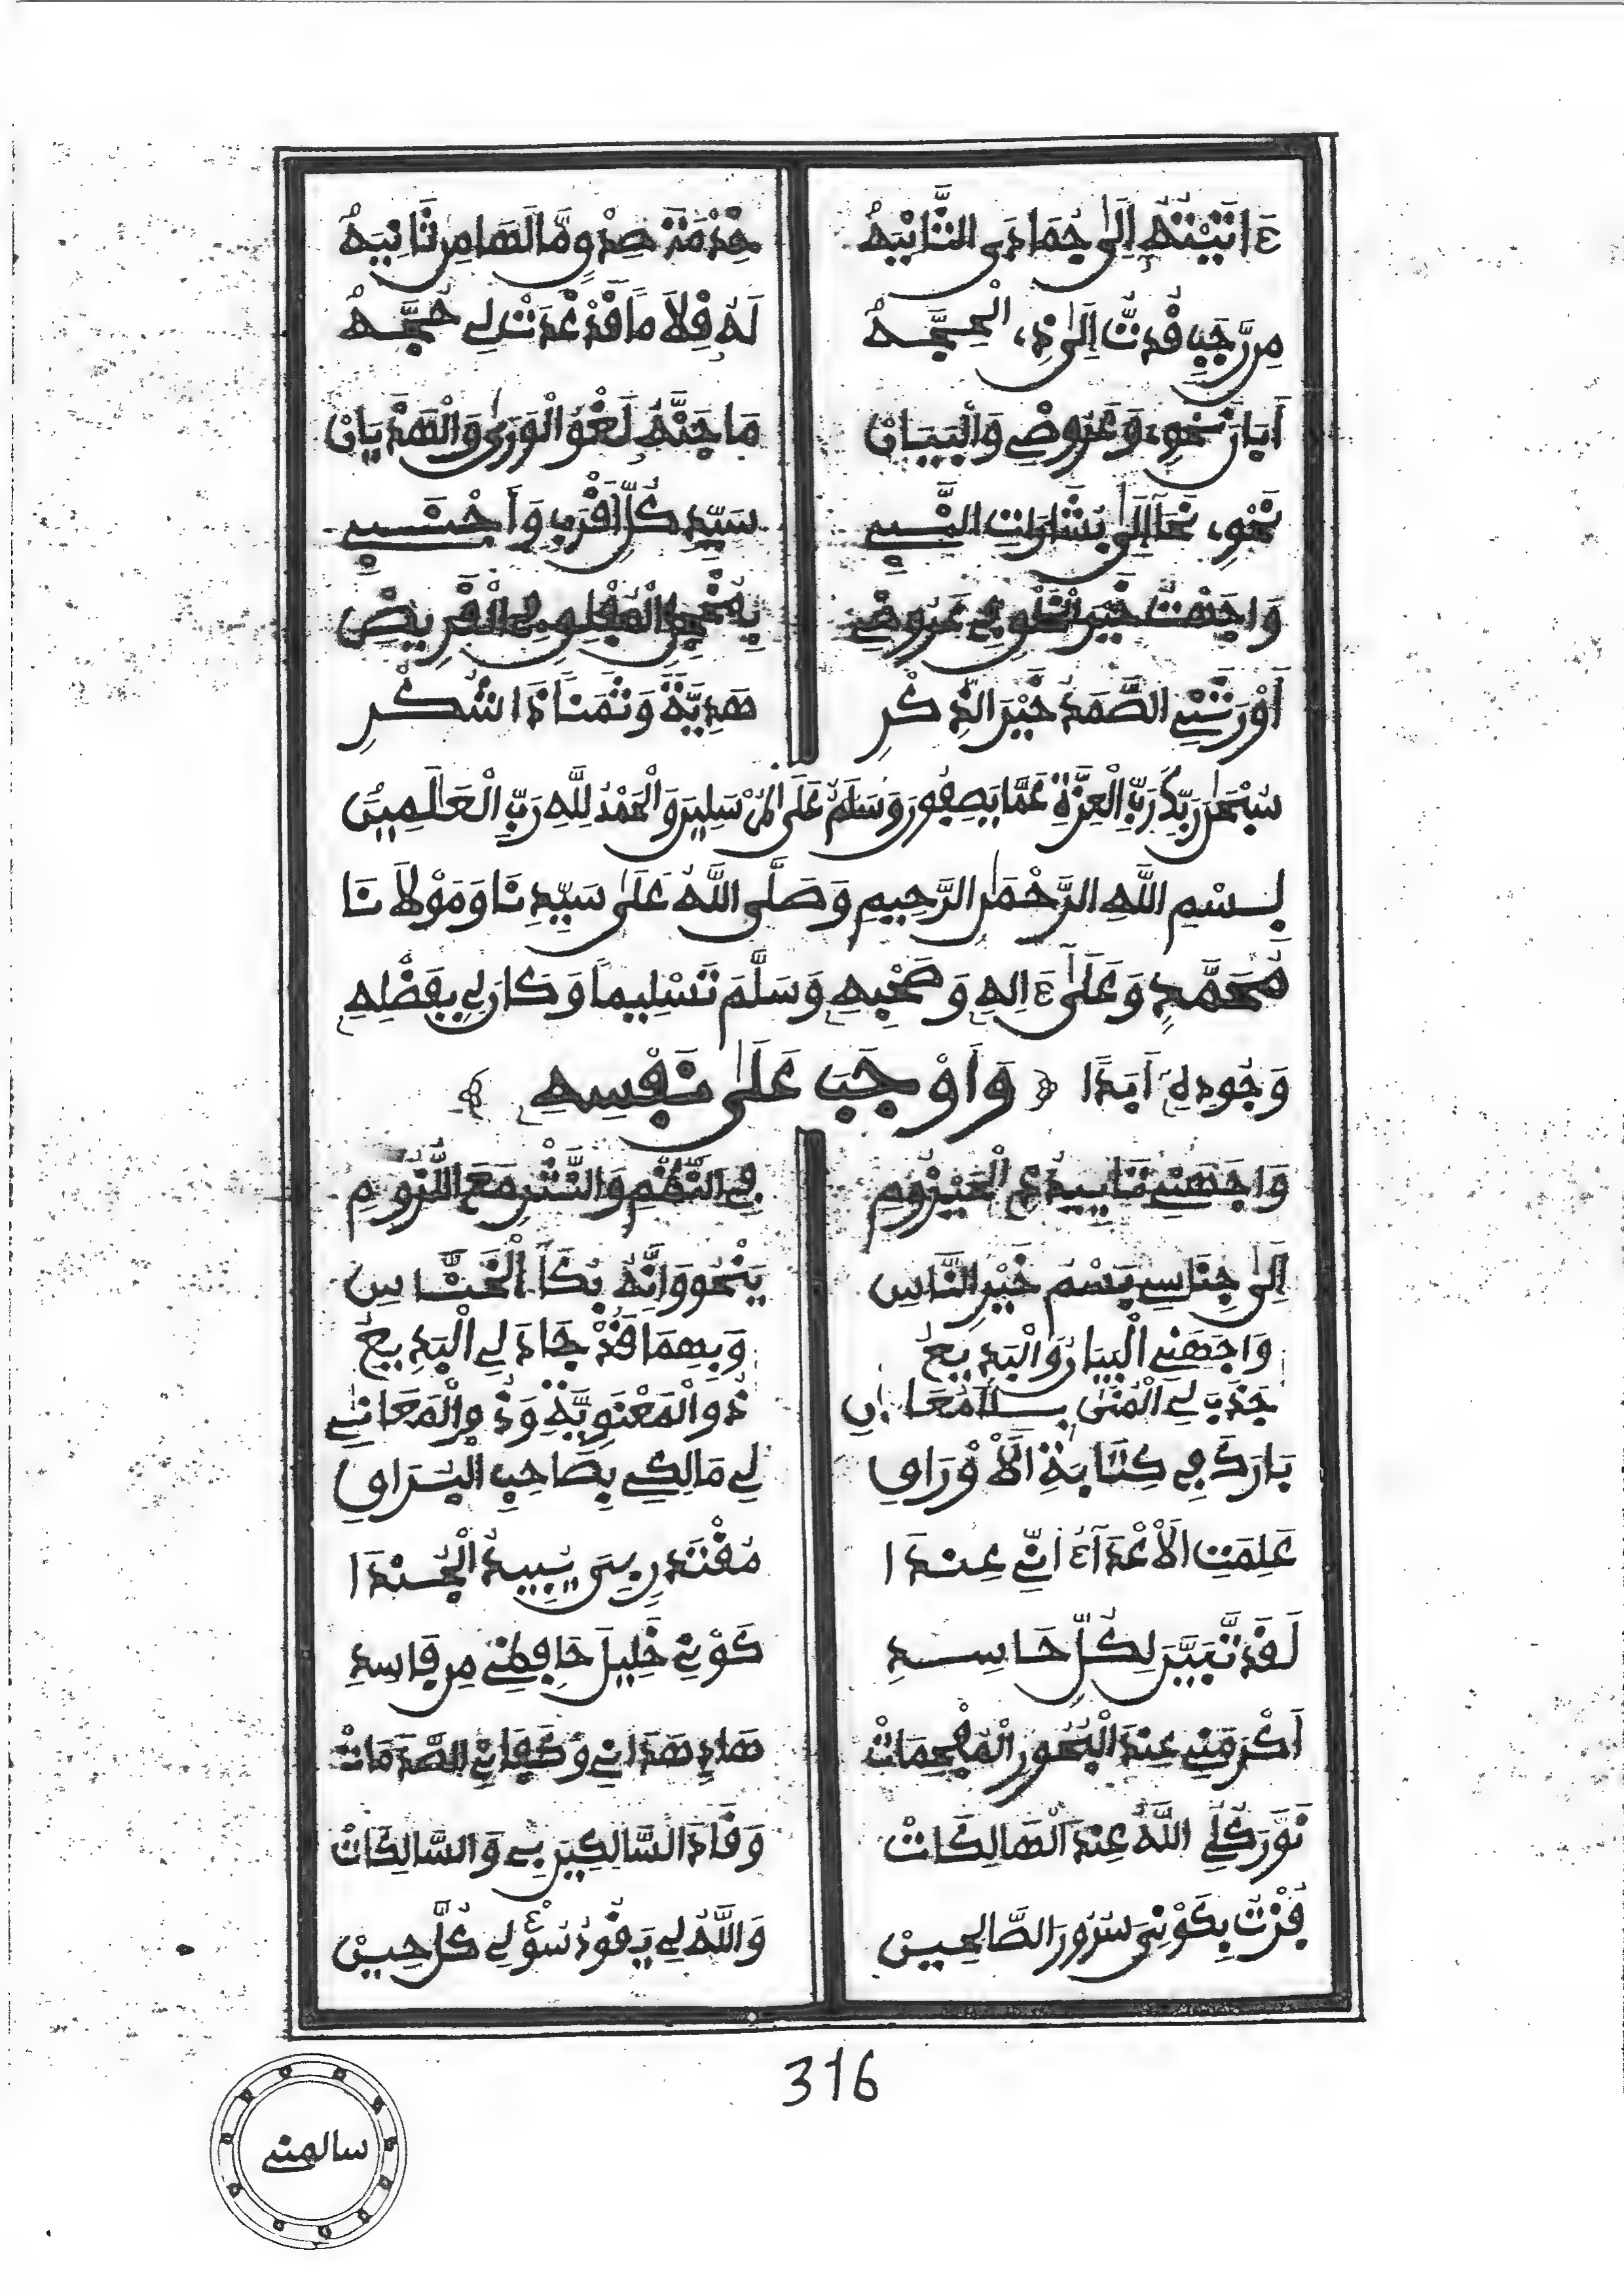 ءَاتَيْتُهُ إِلَىٰ جُمَادَى الثَّانِيَهْ خِدْمَةَ صِدْقٍ مَّا لَهَا مِن ثَانِيَهْ
مِن رَّجَبٍ قُدتُّ إِلَىٰ ذِي الْحِجَّهْ لَهُ فِلاَماً قَدْ غَدَتْ لِي حُجَّهْ
أَبَانَ نَحْوِي وَعَرُوضِي وَالْبَيَانْ مَا جَنَّهُ لَغْوُ الْوَرَىٰ وَالْهَذَيَانْ
نَحْوِي نَحَا إِلَىٰ بُشَارَاتِ النَّبِي سَيِّدِ كُلِّ أَقْرَبٍ وَأَجْنَبِي
وَاجَهْتُ خَيْرَ الْخَلْقِ فِي عَرُوضِي الْقَرِيضِ
أَوْرَثَنِي الصَّمَدُ خَيْرَ الذِّكْرِ هَدِيَّةً وَثَمَناً ذَا شُكْرِ
سُبْحَٰنَ رَبِّكَ رَبِّ الْعِزَّةِ عَمَّا يَصِفُونَ وَسَلَٰمٌ عَلَى الْمُرْسَلِينَ وَالْحَمْدُ لِلَّهِ رَبِّ الْعَٰلَمِينَ
بِسْمِ اللَّهِ الرَّحْمَٰنِ الرَّحِيمِ وَصَلَّى اللَّهُ عَلَىٰ سَيِّدِنَا وَمَوْلاَنَا
مُحَمَّدٍ وَعَلَىٰ ءَالِهِ وَصَحْبِهِ وَسَلَّمَ تَسْلِيماً وَكَانَ لِي بِفَضْلِهِ
وَجُودِهِ أَبَدًا ﴿ وَأَوْجَبَ عَلَىٰ نَفْسِهِ ﴾
وَاجَهَنِي تَأْيِيدُ الْحَيْزُومِ فِي النَّظْمِ وَالنَّثْرِ مَعَ اللُّزُومِ
إِلَىٰ جِنَاسِي بَسْمُ خَيْرِ النَّاسِ يَنْحُو وَإِنَّهُ بُكَا الْخَنَّاسِ
وَاجَهَنِي الْبَيَانُ وَالْبَدِيعُ وَبِهِمَا قَدْ جَادَ لِي الْبَدِيعُ
جَذَبَ لِي الْمُنَىٰ بِلاَ مُعَانِ ذُو الْمَعْنَوِيَّةِ وَذُو الْمَعَانِي
بَارَكَ فِي كِتَابَةِ الْأَوْرَاقِ لِي مَالِكِي بِصَاحِبِ الْبُرَاقِ
عَلِمَتِ الْأَعْدَآءُ أَنِّي عِندَا مُقْتَدِرٍ سِيَ يُبِيدُ الْجُندَا
لَقَدْ تَّبَيَّنَ لِكُلِّ حَاسِدِ كَوْنِي خَلِيلَ حَافِظِي مِن فَاسِدِ
أَكْرَمَنِي عِندَ الْبُحُورِ الْمُفْحِمَاتْ هَادٍ هَدَانِي وَكَفَانِي الصَّدَمَاتْ
نَوَّرَ كُلِّي اللَّهُ عِندَ الْهَالِكَاتْ وَقَادَ السَّالِكِينَ بِي وَالسَّالِكَاتْ
فُزْتُ بِكَوْنِيَ سُرُورَ الصَّالِحِينْ وَاللَّهُ لِي يَقُودُ سُؤْلِي كُلَّ حِينْ
316
سالمني